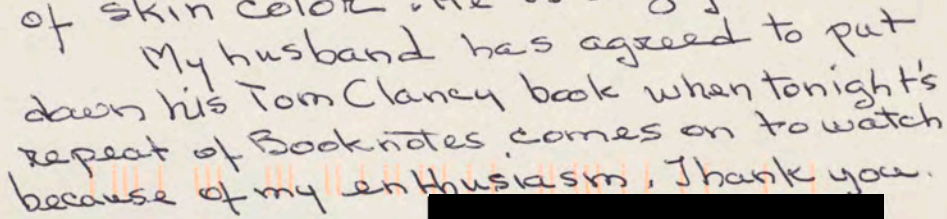 of skin color. He
My husband has agreed to put
down his Tom Clancy book when tonight's
repeat of Booknotes comes on to watch
because of my enthusiasm. Thank you.